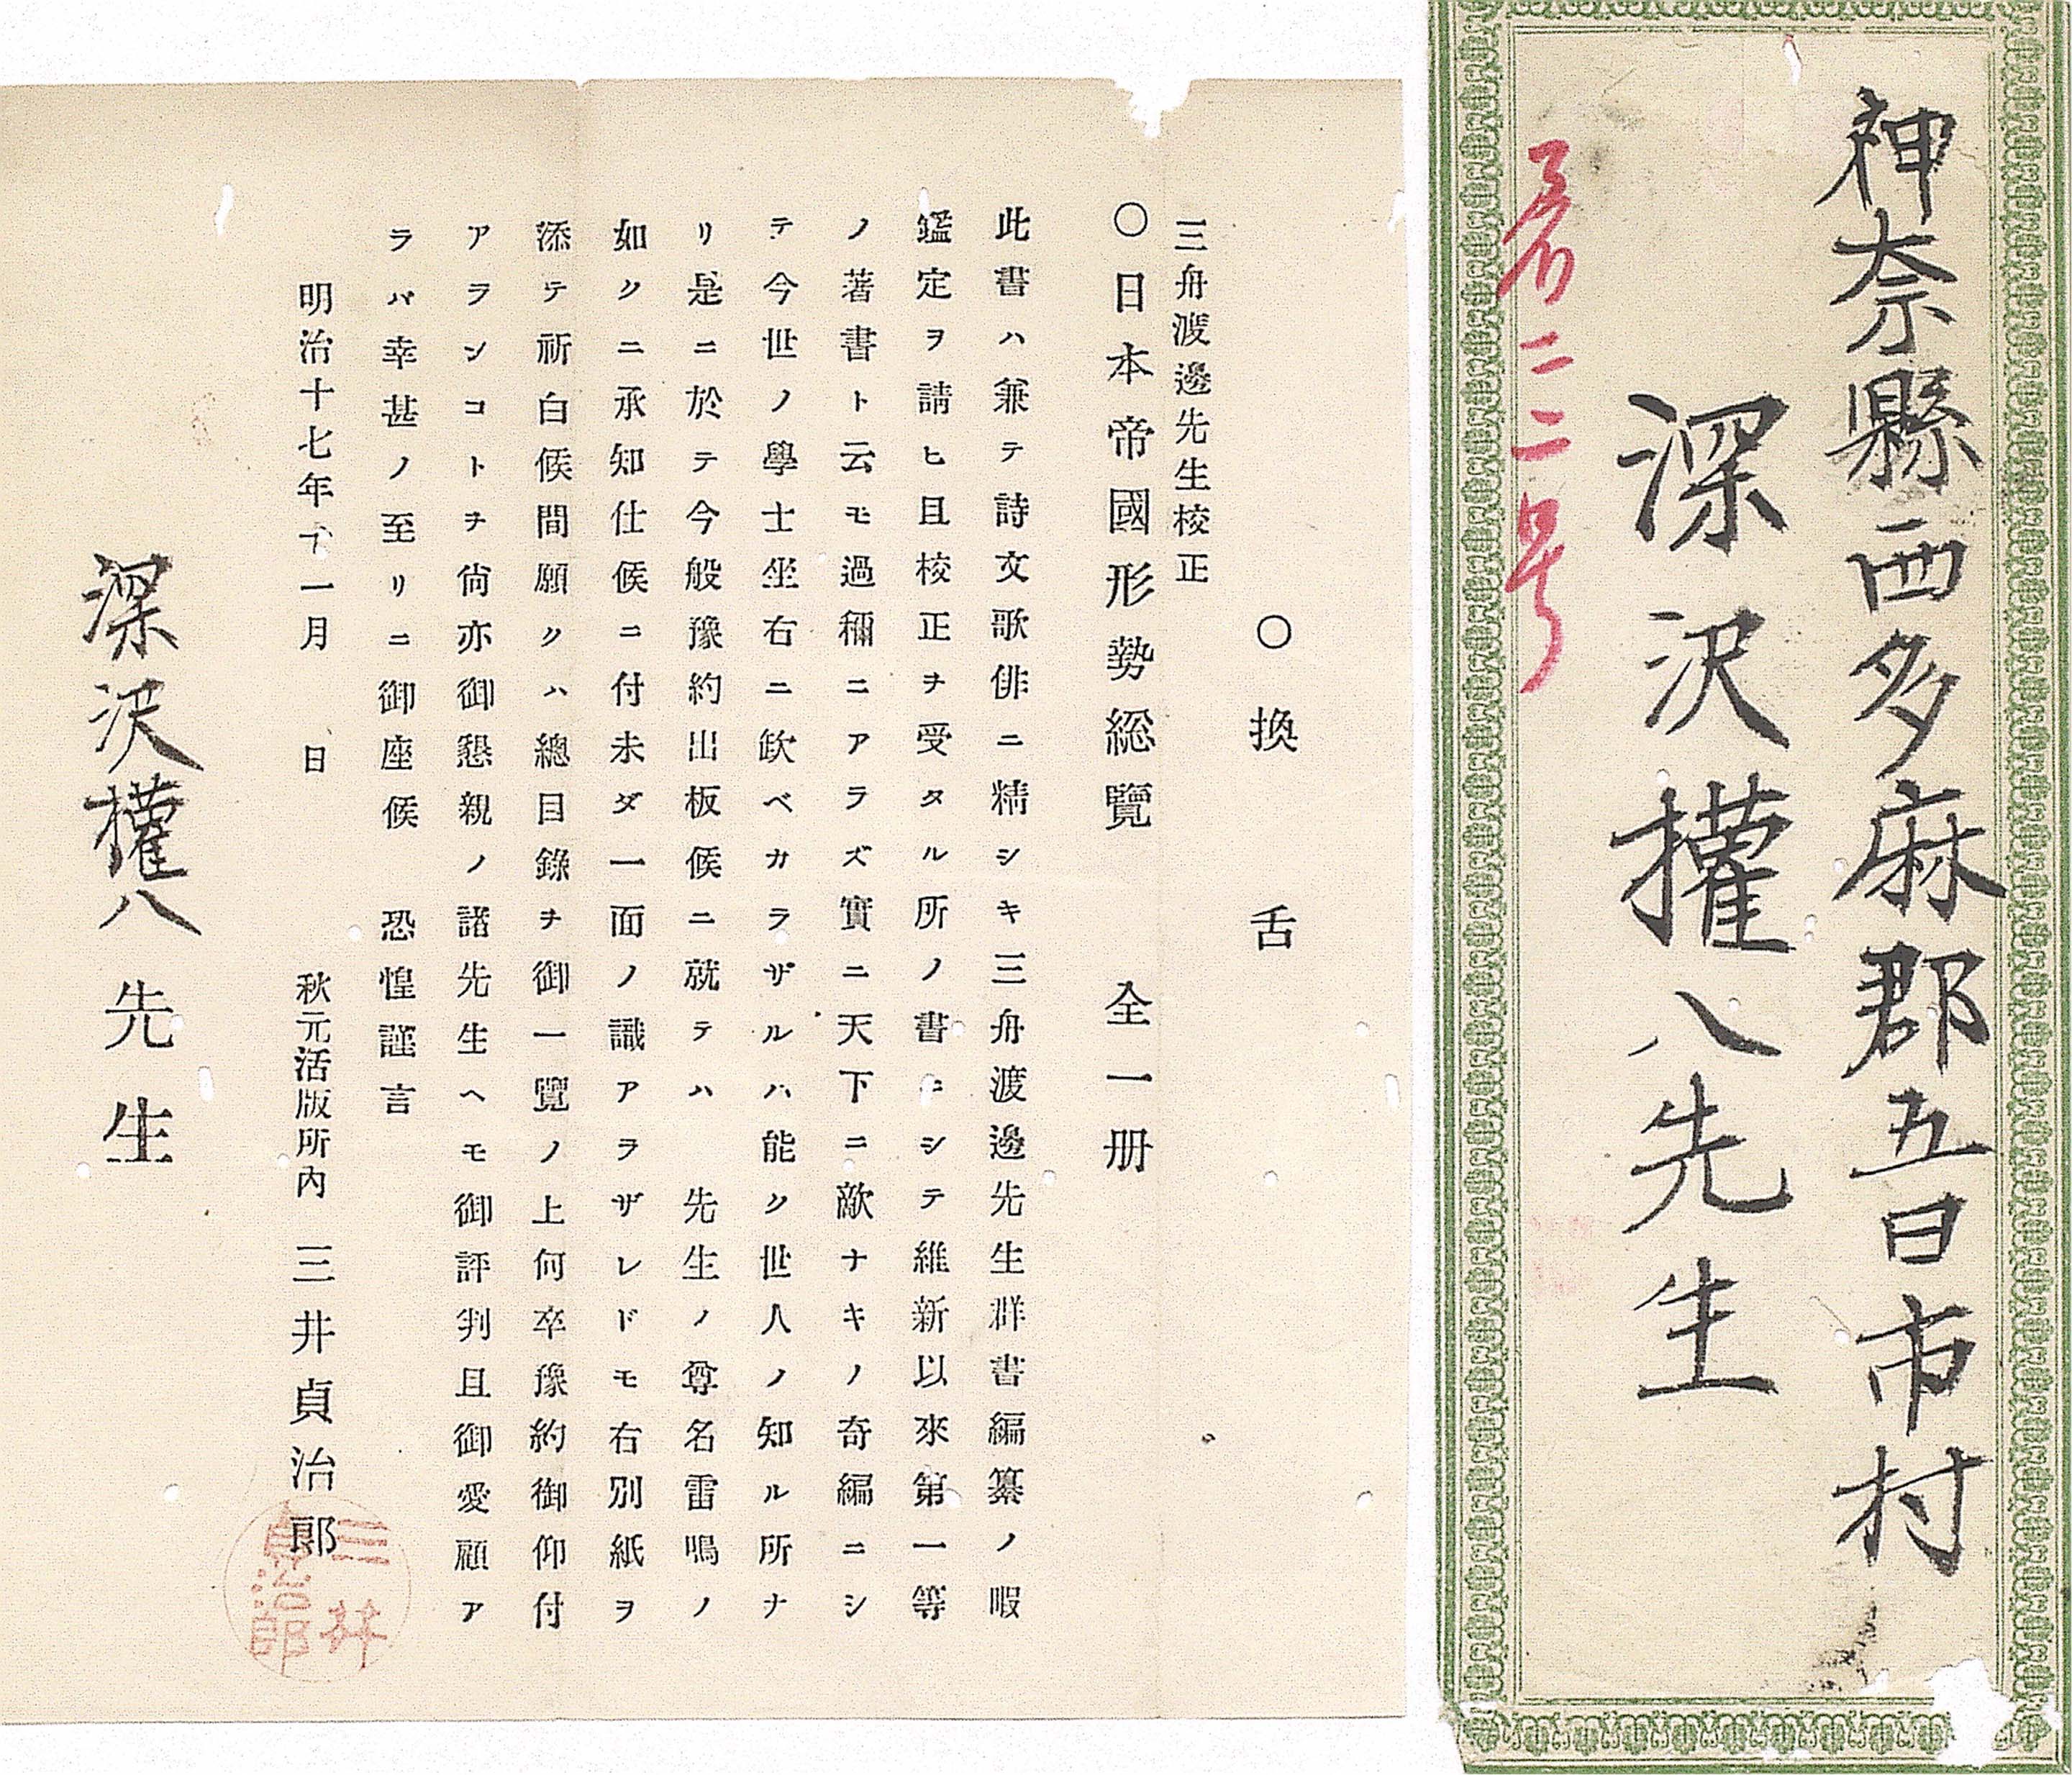 神奈縣西多麻郡五日市村
深沢権八先生
二号
○換舌
三舟渡邊先生校正
○日本帝國形勢総覽 全一册
此書ハ兼テ詩文歌俳ニ精シキ三舟渡邊先生群書編纂ノ暇
鑑定ヲ請ヒ且校正ヲ受タル所ノ書ニシテ維新以來第一等
ノ著書ト云モ過稱ニアラズ實ニ天下ニ敵ナキノ奇編ニシ
テ今世ノ學士坐右ニ欽ベカラザルハ能ク世人ノ知ル所ナ
リ是ニ於テ今般豫約出板候ニ就テハ 先生ノ尊名雷鳴ノ
如クニ承知仕候ニ付未ダ一面ノ識アラザレドモ右別紙ヲ
添テ祈白候間願クハ總目錄ヲ御一覽ノ上何卒豫約御仰付
アランコトヲ尙亦御懇親ノ諸先生ヘモ御評判且御愛顧ア
ラバ幸甚ノ至リニ御座候 恐惶謹言
明治十七年十一月 日 秋元活版所內 三井貞治郎
三井貞治郎
深沢権八先生